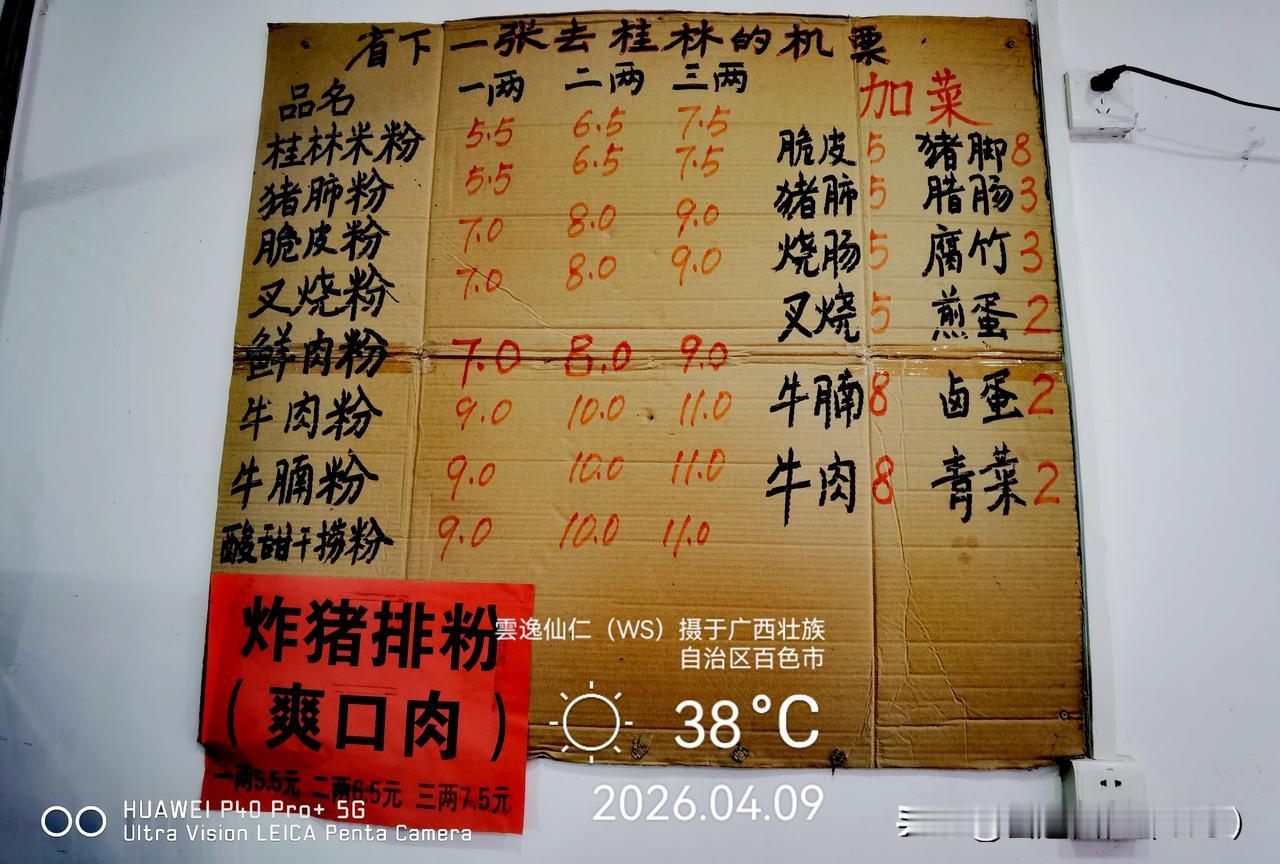 省下一张去桂林的机票
品名 一两 二两 三两
桂林米粉 5.5 6.5 7.5
猪肺粉 5.5 6.5 7.5
脆皮粉 7.0 8.0 9.0
叉烧粉 7.0 8.0 9.0
鲜肉粉 7.0 8.0 9.0
牛肉粉 9.0 10.0 11.0
牛腩粉 9.0 10.0 11.0
酸甜干捞粉 9.0 10.0 11.0
加菜
脆皮 5 猪脚 8
猪肺 5 腊肠 3
烧肠 5 腐竹 3
叉烧 5 煎蛋 2
牛腩 8 卤蛋 2
牛肉 8 青菜 2
炸猪排粉
(爽口肉)
一两5.5元 二两6.5元 三两7.5元
雲逸仙仁（WS）摄于广西壮族
自治区百色市
38°C
2026.04.09
HUAWEI P40 Pro+ 5G
Ultra Vision LEICA Penta Camera